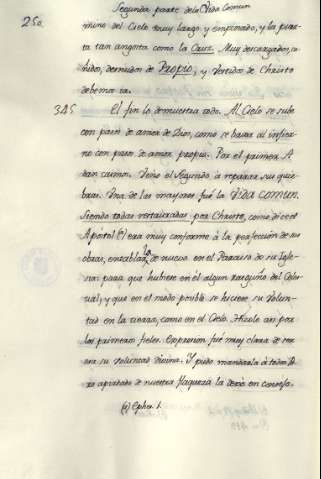 250
Segunda parte de la Vida Comun
mino del Cielo muy largo y empinado, y la puer-
ta tan angosta como la Cruz. Muy descargados, u-
nidos, desnudos de Propio, y vestidos de Christo
debemos ir.
345 El fin lo demuestra todo. Al Cielo se sube
con pasos de amor de Dios, como se baxa al infier-
no con pasos de amor propio. Por el primer A-
dan caimos. Vino el Segundo a reparar sus quie-
bras. Una de las mayores fué la Vida comun.
Siendo todas restauradas por Christo, como dice el
Apostol (1) era muy conforme á la perfección de su
obra, entablarla de nuevo en el Paraiso de su Igle-
sia: para que hubiese en él algun rasguño del Celes-
tial; y que en el modo posible se hiciese su Volun-
tad en la tierra, como en el Cielo. Hizole asi por
los primeros fieles. Expresion fué muy clara de ser
esa su voluntad divina. Y pudo mandarla á todos. Pe-
ro apiadado de nuestra flaqueza la dexó en consejo.
(1) Ephes. 1.